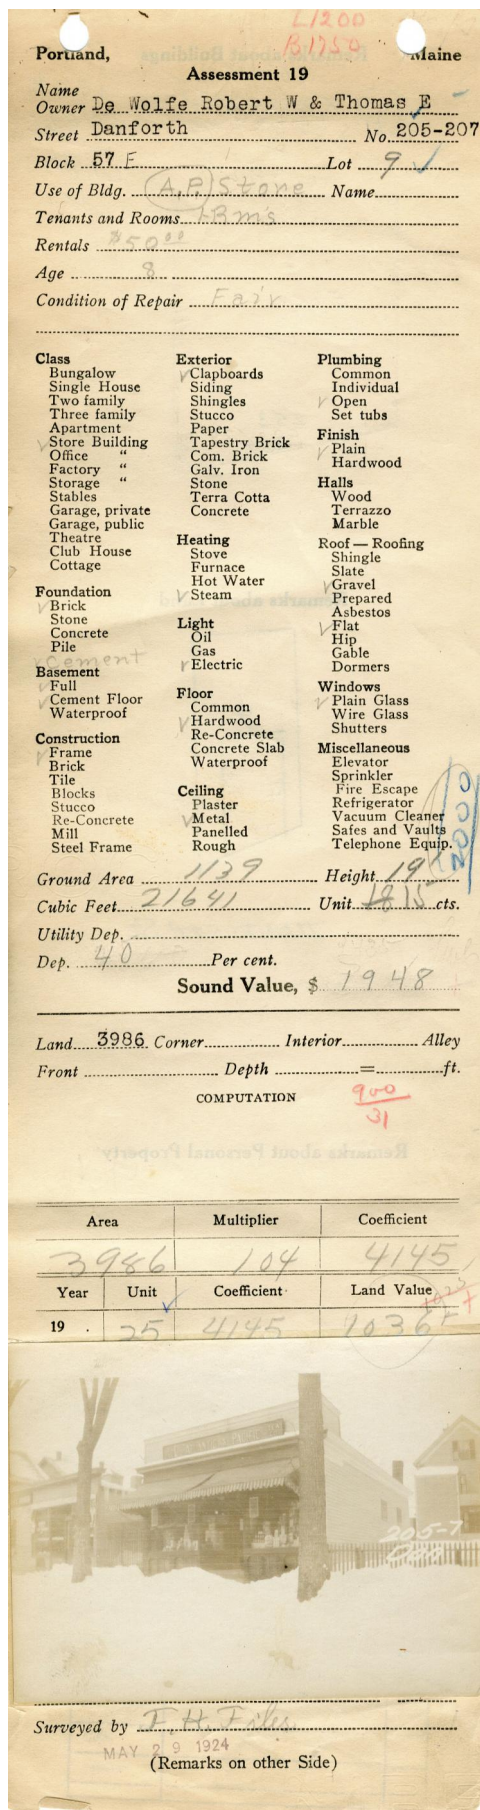 L1200
B1750
Portland, Maine
Assessment 19
Name
Owner De Wolfe Robert W & Thomas E
Street Danforth No. 205-207
Block 57 F Lot 9 ✓
Use of Bldg. A.P. Store Name
Tenants and Rooms 1 Rms
Rentals $50.00
Age 8
Condition of Repair Fair
Class
Bungalow
Single House
Two family
Three family
Apartment
✓ Store Building
Office "
Factory "
Storage "
Stables
Garage, private
Garage, public
Theatre
Club House
Cottage
Foundation
✓ Brick
Stone
Concrete
Pile
✓ Cement
Basement
✓ Full
✓ Cement Floor
Waterproof
Construction
✓ Frame
Brick
Tile
Blocks
Stucco
Re-Concrete
Mill
Steel Frame
Exterior
✓ Clapboards
Siding
Shingles
Stucco
Paper
Tapestry Brick
Com. Brick
Galv. Iron
Stone
Terra Cotta
Concrete
Heating
Stove
Furnace
Hot Water
✓ Steam
Light
Oil
Gas
✓ Electric
Floor
Common
✓ Hardwood
Re-Concrete
Concrete Slab
Waterproof
Ceiling
Plaster
✓ Metal
Panelled
Rough
Plumbing
Common
Individual
✓ Open
Set tubs
Finish
✓ Plain
Hardwood
Halls
Wood
Terrazzo
Marble
Roof — Roofing
Shingle
Slate
✓ Gravel
Prepared
Asbestos
✓ Flat
Hip
Gable
Dormers
Windows
✓ Plain Glass
Wire Glass
Shutters
Miscellaneous
Elevator
Sprinkler
Fire Escape
Refrigerator
Vacuum Cleaner
Safes and Vaults
Telephone Equip.
2000
Ground Area 1139 Height 19
Cubic Feet 21641 Unit 18 15 cts.
Utility Dep.
Dep. 40 Per cent.
Sound Value, $ 1948
Land 3986 Corner Interior Alley
Front Depth = ft.
COMPUTATION
900
31
Area Multiplier Coefficient
3986 104 4145
Year Unit Coefficient Land Value
19 . 25 4145 1036
205-7
Dan
Surveyed by F. H. Files
MAY 29 1924
(Remarks on other Side)